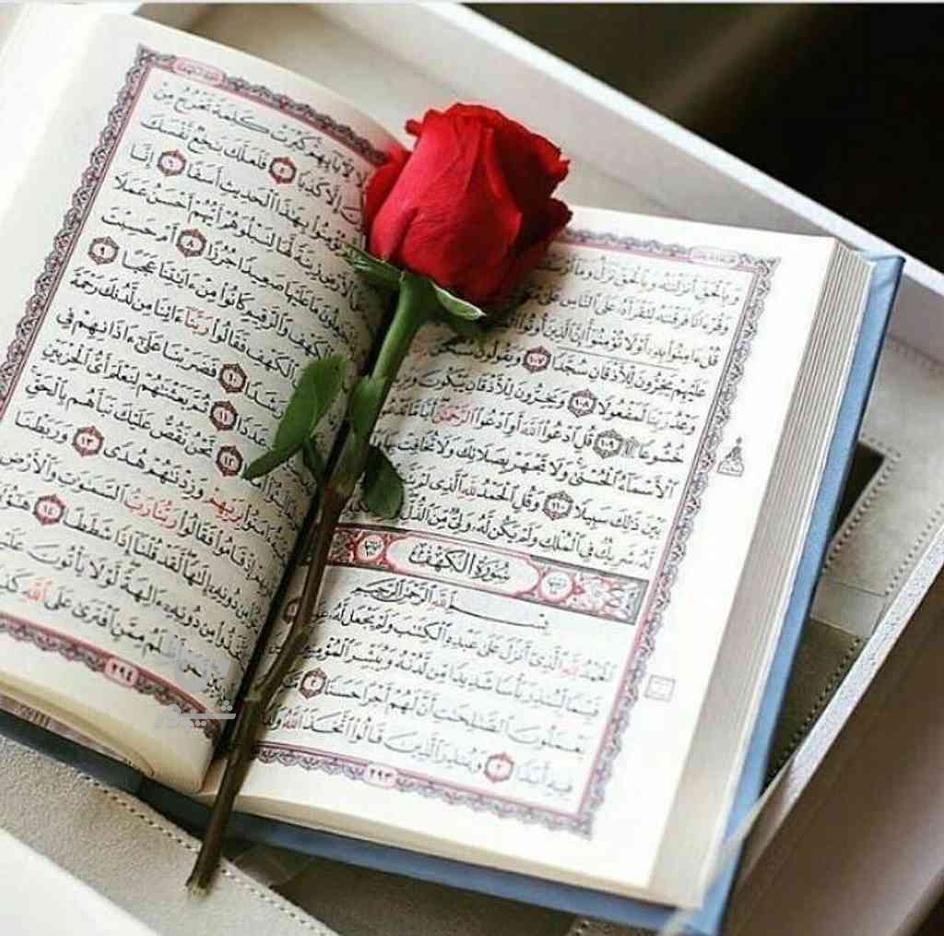 وَبِالْحَقِّ أَنزَلْنَاهُ وَبِالْحَقِّ نَزَلَ وَمَا
وَقُرْءَانًا فَرَقْنَاهُ لِتَقْرَأَهُ عَلَى النَّاسِ عَلَىٰ
قُلْ ءَامِنُوا بِهِ أَوْ لَا تُؤْمِنُوا إِنَّ الَّذِينَ أُوتُوا
عَلَيْهِمْ يَخِرُّونَ لِلْأَذْقَانِ سُجَّدًا ١٠٧ وَيَقُولُونَ سُبْحَٰنَ
وَعْدُ رَبِّنَا لَمَفْعُولًا ١٠٨ وَيَخِرُّونَ لِلْأَذْقَانِ يَبْكُونَ
خُشُوعًا ۩ ١٠٩ قُلِ ادْعُوا اللَّهَ أَوِ ادْعُوا الرَّحْمَٰنَ أَيًّا مَّا تَدْعُوا
الْأَسْمَاءُ الْحُسْنَىٰ وَلَا تَجْهَرْ بِصَلَاتِكَ وَلَا تُخَافِتْ
بَيْنَ ذَٰلِكَ سَبِيلًا ١١٠ وَقُلِ الْحَمْدُ لِلَّهِ الَّذِي لَمْ
لَّهُ شَرِيكٌ فِي الْمُلْكِ وَلَمْ يَكُن لَّهُ وَلِيٌّ مِّنَ الذُّلِّ
سُورَةُ الْكَهْفِ
بِسْمِ اللَّهِ الرَّحْمَٰنِ الرَّحِيمِ
الْحَمْدُ لِلَّهِ الَّذِي أَنزَلَ عَلَىٰ عَبْدِهِ الْكِتَٰبَ وَلَمْ يَجْعَل لَّهُ
قَيِّمًا لِّيُنذِرَ بَأْسًا شَدِيدًا مِّن لَّدُنْهُ وَيُبَشِّرَ الْمُؤْمِنِينَ
يَعْمَلُونَ الصَّٰلِحَٰتِ أَنَّ لَهُمْ أَجْرًا حَسَنًا ٢
فِيهِ أَبَدًا ٣ وَيُنذِرَ الَّذِينَ قَالُوا اتَّخَذَ اللَّهُ
٢٩٣
وَلَا لِآبَائِهِمْ كَبُرَتْ كَلِمَةً تَخْرُجُ مِنْ
إِلَّا كَذِبًا ٥ فَلَعَلَّكَ بَٰخِعٌ نَّفْسَكَ
يُؤْمِنُوا بِهَٰذَا الْحَدِيثِ أَسَفًا ٦ إِنَّا
الْأَرْضِ زِينَةً لَّهَا لِنَبْلُوَهُمْ أَيُّهُمْ أَحْسَنُ عَمَلًا
مَا عَلَيْهَا صَعِيدًا جُرُزًا ٨ أَمْ حَسِبْتَ
الْكَهْفِ وَالرَّقِيمِ كَانُوا مِنْ ءَايَٰتِنَا عَجَبًا ٩
الْكَهْفِ فَقَالُوا رَبَّنَا ءَاتِنَا مِن لَّدُنكَ رَحْمَةً
رَشَدًا ١٠ فَضَرَبْنَا عَلَىٰ ءَاذَانِهِمْ فِي
عَدَدًا ١١ ثُمَّ بَعَثْنَٰهُمْ لِنَعْلَمَ أَيُّ الْحِزْبَيْنِ
١٢ نَّحْنُ نَقُصُّ عَلَيْكَ نَبَأَهُم بِالْحَقِّ
ءَامَنُوا بِرَبِّهِمْ وَزِدْنَٰهُمْ هُدًى ١٣ وَرَبَطْنَا
إِذْ قَامُوا فَقَالُوا رَبُّنَا رَبُّ السَّمَٰوَٰتِ وَالْأَرْضِ
مِن دُونِهِ إِلَٰهًا لَّقَدْ قُلْنَا إِذًا شَطَطًا ١٤
اتَّخَذُوا مِن دُونِهِ ءَالِهَةً لَّوْلَا يَأْتُونَ
أَظْلَمُ مِمَّنِ افْتَرَىٰ عَلَى اللَّهِ
٢٩٤